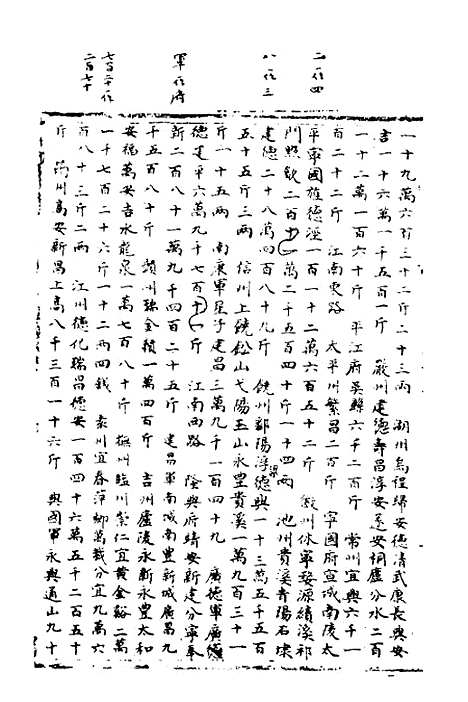 二作四
八作三
軍作府
七百二十作
二百七十
一十九萬六百三十二斤二十三兩　湖州烏程歸安德清武康長興安
吉一十六萬一千五百一斤　嚴州建德壽昌淳安遂安桐廬分水二百
一十二萬一百六十斤　平江府吳縣六千二百斤　常州宜興六千一
百二十二斤　江南東路　太平州繁昌二百斤　寧國府宣城南陵太
平寧國旌德涇一百一十二萬六百五十二斤　徽州休寧婺源績溪祁
門黟歙二百十一萬二千五百四十斤一十四兩　池州貴溪青陽石埭
建德二十八萬四百八十九斤　饒州鄱陽浮德興一十三萬五千五百
五十五斤三兩　信州上饒鉛山弋陽玉山永豐貴溪一萬九百三十一
斤一十五兩　南康軍星子建昌三萬九千一百四十九　廣德軍廣德
建平六萬九千七百十一斤　江南西路　隆興府靖安新建分寧奉
新二百八十一萬九千四百二十五斤　建昌軍南城南豐新城廣昌九
千五百八十斤　贛州瑞金贛一萬四百斤　吉州廬陵永新永豐太和
安福萬安吉水龍泉一萬七百八十斤　撫州臨川崇仁宜黃金谿二萬
一千七百二十六斤一十二兩四錢　袁州宜春萍鄉萬載分宜九萬六
百八十三斤二兩　江州德化瑞昌德安一百四十六萬五千二百五十
斤　筠州高安新昌上高八千三百一十六斤　興國軍永興通山九十